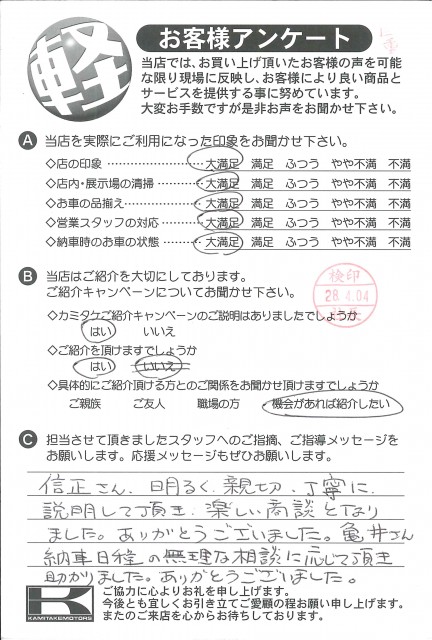 軽
お客様アンケート
当店では、お買い上げ頂いたお客様の声を可能
な限り現場に反映し、お客様により良い商品と
サービスを提供する事に努めています。
大変お手数ですが是非お声をお聞かせ下さい。
A 当店を実際にご利用になった印象をお聞かせ下さい。
◇店の印象 大満足 満足 ふつう やや不満 不満
◇店内・展示場の清掃 大満足 満足 ふつう やや不満 不満
◇お車の品揃え 大満足 満足 ふつう やや不満 不満
◇営業スタッフの対応 大満足 満足 ふつう やや不満 不満
◇納車時のお車の状態 大満足 満足 ふつう やや不満 不満
B 当店はご紹介を大切にしてあります。
ご紹介キャンペーンについてお聞かせ下さい。
検印
28.4.04
◇カミタケご紹介キャンペーンのご説明はありましたでしょうか
はい いいえ
◇ご紹介を頂けますでしょうか
はい いいえ
◇具体的にご紹介頂ける方とのご関係をお聞かせ頂けますでしょうか
ご親族 ご友人 職場の方 機会があれば紹介したい
C 担当させて頂きましたスタッフへのご指摘、ご指導メッセージを
お願いします。応援メッセージもぜひお願いします。
信正さん、明るく、親切、丁寧に、
説明して頂き、楽しい商談となり
ました。ありがとうございました。亀井さん
納車日程の無理な相談に応じて頂き
助かりました。ありがとうございました。
K
KAMITAKEMOTORS
ご協力に心よりお礼を申し上げます。
今後とも宜しくお引き立てご愛顧の程お願い申し上げます。
またのご来店を心からお待ちしております。